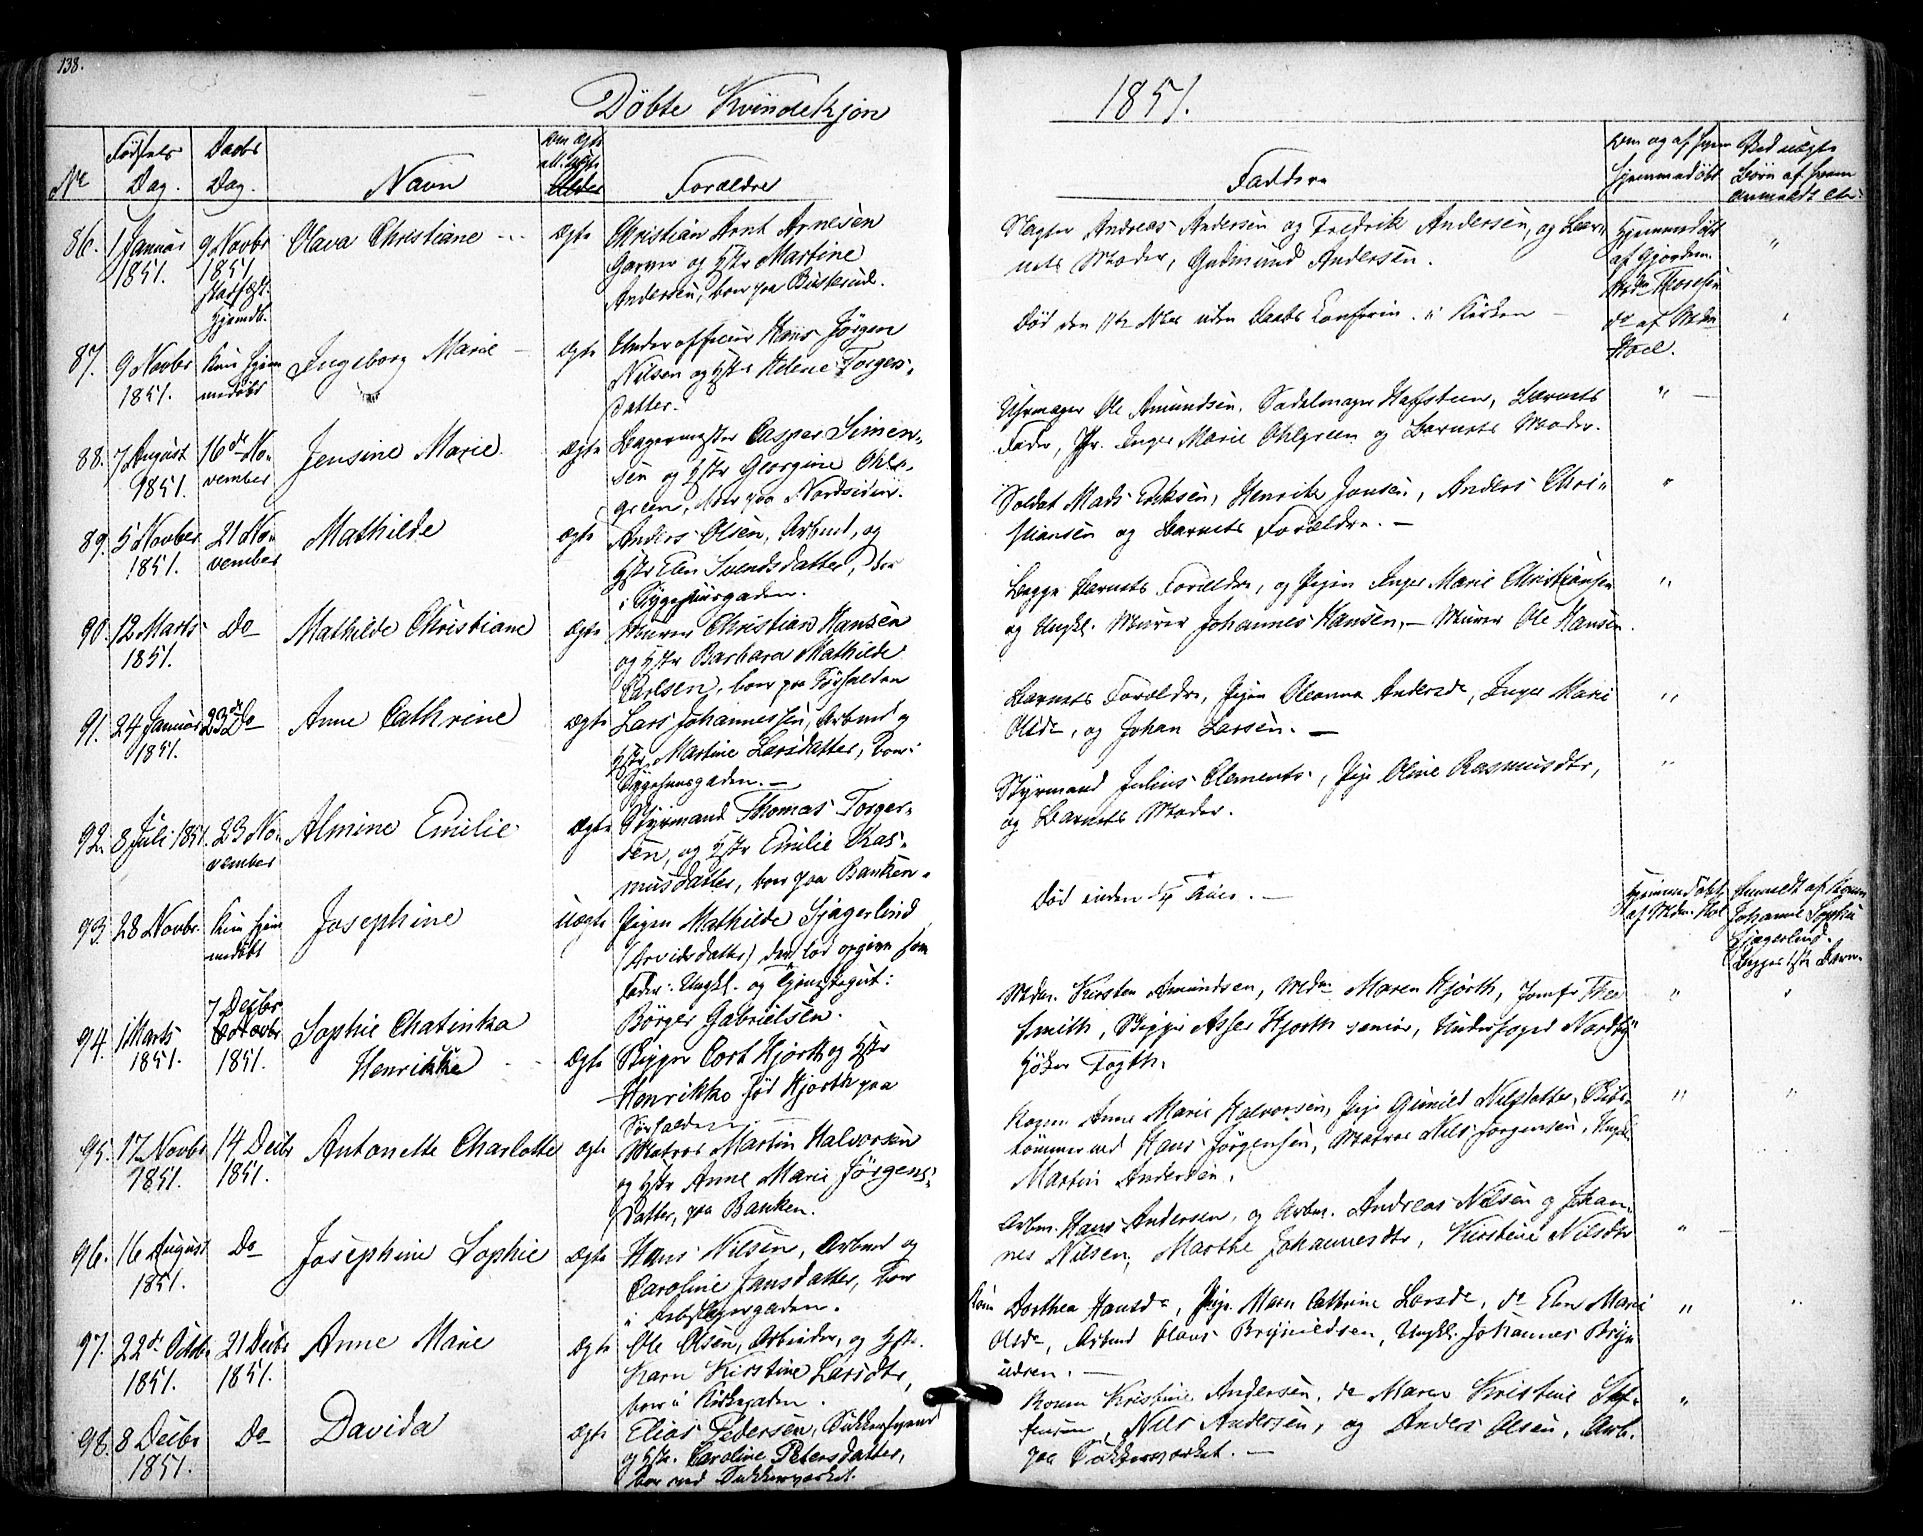 138.
Døbte Kvindekjøn
1851.
No
Fødsels Dag.
Daabs Dag.
Navn
Om Ægte ell. Uægte
Forældre
Faddere
Om og af hvem hjemmedøbt
Ved uægte Børn af hvem anmeldt etc:
86. 1 Januar 1851. 9 Novbr 1851 stadfæst. Hjemdb.
Olava Christiane
Ægte
Christian Arnt Arnesen
Garver og Hstr Martine
Andersen, boer paa
Slagter Andreas Andersen og Fredrik Andersen, og Bar-
nets Moder, Gudmund Andersen.
Hjemmedøbt
af Gjordem.
"
87. 9 Novbr 1851. Kun hjem medøbt
Ingeborg Marie
Ægte
Underofficer Hans Jørgen
Nilsen og Hstr Helene Torgers-
datter.
Død den uden Daabs Confirm. i Kirken
do af Mdm
Hoel.
88. 7 August 1851. 16de No- vember
Jensine Marie
Ægte
Bagermester Casper Simen-
sen og Hstr Georgine Ohl-
green, boer paa Nordsiden.
Uhrmager Ole Amundsen, Sadelmager Hafsteen, Barnets
Fader, Jfr. Inger Marie Ohlgreen og Barnets Moder.
"
89. 5 Novber 1851. 21 No- vember
Mathilde
Ægte
Anders Olsen, Arbmd, og
Hstr Elen Svendsdatter, boer
i Sygehusgaden.
Soldat Mads Eriksen, Henrik Jonsen, Anders Chri-
stiansen og Barnets Forældre. —
"
90. 12 Marts 1851. Do
Mathilde Christiane
Ægte
Murer Christian Hansen
og Hstr Barbara Mathilde
Carlsen, boer paa Tørfalden
Begge Barnets Forældre, og Pigen Inger Marie Christiansen
og Ungkl. Murer Johannes Hansen, — Murer Ole Hansen.
"
91. 24 Januar 1851. 23de Do
Anne Cathrine
Ægte
Lars Johannessen, Arbmd og
Hstr Martine Larsdatter, boer i
Sygehusgaden. —
Barnets Forældre, Pigen Oleanna Andersdr, Inger Marie
Olsdr, og Johan Larsen. —
"
92. 8 Juli 1851. 23 No- vember
Almine Emilie
Ægte
Styrmand Thomas Torger-
sen, og Hstr Emilie Ras-
musdatter, boer paa Banken.
Styrmand Julius Clements, Pige Oline Rasmusdtr,
og Barnets Moder.
"
93. 28 Novbr. Kun hjem medøbt
Josephine
Uægte
Pigen Mathilde Sjagerlind
(Arvidsdatter) der lod opgive som
Fader: Ungkl. og Tjenestegut:
Børger Gabrielsen.
Død inden —
Hjemmedøbt
af Mdm. Hoel
Anmeldt af Konen
Johanne Sophie
Sjagerlind.
Begges 1ste Barn.
94. 1 Marts 1851. 7 Decbr 1851.
Sophie Chatinka
Henrikke
Ægte
Skipper Cort Hjorth og Hstr
Henrikke fød Hjorth paa
Tørfalden
Mdm. Kirsten Amundsen, Mdm Maren Hjorth, Jomfr Thea
Smith, Skipper Asser Hjorth senior, Underfoged Nordby
Høker Fogth.
"
95. 17 Novbr 1851. 14 Decbr 1851.
Antonette Charlotte
Ægte
Matros Martin Halvorsen
og Hstr Anne Marie Jørgens-
datter, paa Banken.
Konen Anne Marie Halvorsen, Pige Gunild Nilsdatter,
tømmermd Hans Jørgensen, Matros Nils Jørgensen, Ungkl.
Martin Andersen.
"
96. 16 August 1851. Do
Josephine Sophie
Ægte
Hans Nilsen, Arbmd og
Caroline Jansdatter, boer
i
Arbm. Hans Andersen, og Arbm. Andreas Nilsen og Johan-
nes Nilsen, Marthe Johannesdtr, Kirstine Nilsdtr
"
97. 22de Octbr 1851. 21 Decbr 1851.
Anne Marie
Ægte
Ole Olsen, Arbeider, og Hstr.
Karn Kirstine Larsdtr,
boer i Kirkegaden.
Kone Dorthea Hansdr, Pige Maren Cathrine Larsdr, do Elen Marie
Olsdr, Arbmd Olavs Brynildsen, Ungkl. Johannes Bryn
ildsen. —
"
98. 8 Decbr 1851. Do
Davida
Ægte
Elias Pedersen,
og Hstr. Caroline Petersdatter,
boer ved Sukkerværket.
Konen Kristine Andersen, do Maren Kristine Stef-
fensen, Nils Andersen, og Anders Olsen, Arb.
paa Sukkerværket. —
"